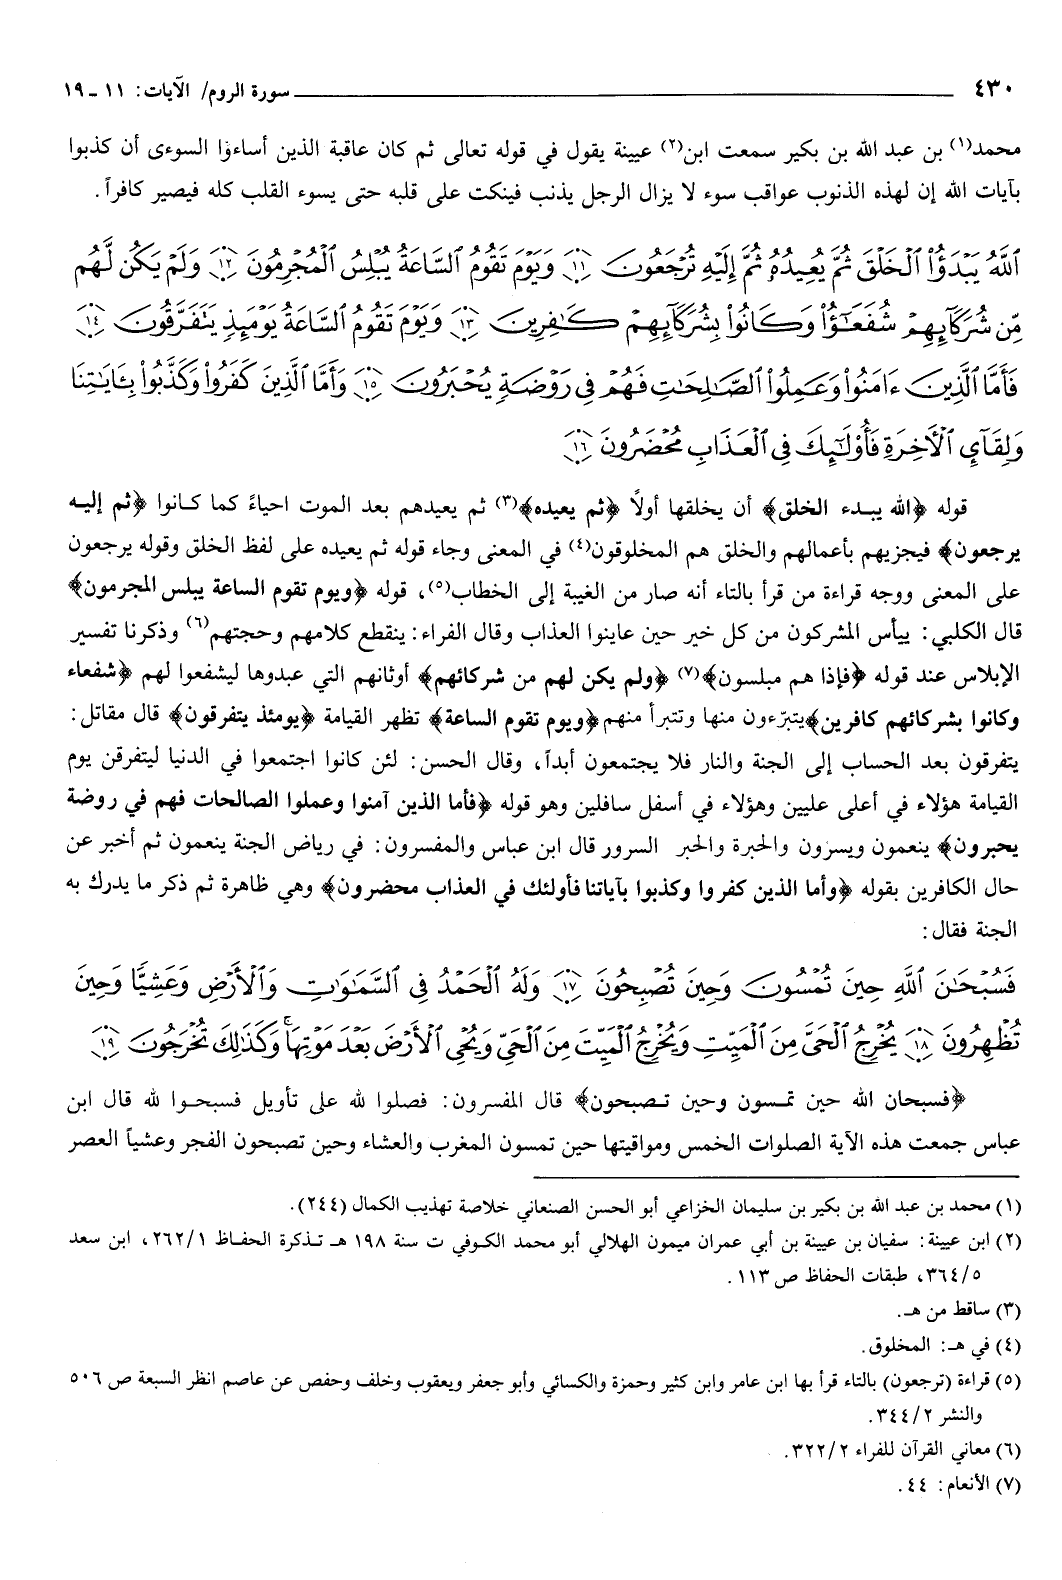 ٤٣٠ سورة الروم/ الآيات: ١١ - ١٩
محمد(١) بن عبد الله بن بكير سمعت ابن(٢) عيينة يقول في قوله تعالى ثم كان عاقبة الذين أساءؤا السوءى أن كذبوا
بآيات الله إن لهذه الذنوب عواقب سوء لا يزال الرجل يذنب فينكت على قلبه حتى يسوء القلب كله فيصير كافراً.
ٱللَّهُ يَبْدَؤُا۟ ٱلْخَلْقَ ثُمَّ يُعِيدُهُۥ ثُمَّ إِلَيْهِ تُرْجَعُونَ ١١ وَيَوْمَ تَقُومُ ٱلسَّاعَةُ يُبْلِسُ ٱلْمُجْرِمُونَ ١٢ وَلَمْ يَكُن لَّهُم
مِّن شُرَكَآئِهِمْ شُفَعَٰٓؤُا۟ وَكَانُوا۟ بِشُرَكَآئِهِمْ كَٰفِرِينَ ١٣ وَيَوْمَ تَقُومُ ٱلسَّاعَةُ يَوْمَئِذٍ يَتَفَرَّقُونَ ١٤
فَأَمَّا ٱلَّذِينَ ءَامَنُوا۟ وَعَمِلُوا۟ ٱلصَّٰلِحَٰتِ فَهُمْ فِى رَوْضَةٍ يُحْبَرُونَ ١٥ وَأَمَّا ٱلَّذِينَ كَفَرُوا۟ وَكَذَّبُوا۟ بِـَٔايَٰتِنَا
وَلِقَآئِ ٱلْأَخِرَةِ فَأُو۟لَٰٓئِكَ فِى ٱلْعَذَابِ مُحْضَرُونَ ١٦
قوله ﴿الله يبدء الخلق﴾ أن يخلقها أولاً ﴿ثم يعيده﴾(٣) ثم يعيدهم بعد الموت احياءً كما كانوا ﴿ثم إليه
يرجعون﴾ فيجزيهم بأعمالهم والخلق هم المخلوقون(٤) في المعنى وجاء قوله ثم يعيده على لفظ الخلق وقوله يرجعون
على المعنى ووجه قراءة من قرأ بالتاء أنه صار من الغيبة إلى الخطاب(٥)، قوله ﴿ويوم تقوم الساعة يبلس المجرمون﴾
قال الكلبي: ييأس المشركون من كل خير حين عاينوا العذاب وقال الفراء: ينقطع كلامهم وحجتهم(٦) وذكرنا تفسير
الإبلاس عند قوله ﴿فإذا هم مبلسون﴾(٧) ﴿ولم يكن لهم من شركائهم﴾ أوثانهم التي عبدوها ليشفعوا لهم ﴿شفعاء
وكانوا بشركائهم كافرين﴾يتبرّءون منها وتتبرأ منهم ﴿ويوم تقوم الساعة﴾ تظهر القيامة ﴿يومئذ يتفرقون﴾ قال مقاتل:
يتفرقون بعد الحساب إلى الجنة والنار فلا يجتمعون أبداً، وقال الحسن: لئن كانوا اجتمعوا في الدنيا ليتفرقن يوم
القيامة هؤلاء في أعلى عليين وهؤلاء في أسفل سافلين وهو قوله ﴿فأما الذين آمنوا وعملوا الصالحات فهم في روضة
يحبرون﴾ ينعمون ويسرّون والحبرة والحبر السرور قال ابن عباس والمفسرون: في رياض الجنة ينعمون ثم أخبر عن
حال الكافرين بقوله ﴿وأما الذين كفروا وكذبوا بآياتنا فأولئك في العذاب محضرون﴾ وهي ظاهرة ثم ذكر ما يدرك به
الجنة فقال:
فَسُبْحَٰنَ ٱللَّهِ حِينَ تُمْسُونَ وَحِينَ تُصْبِحُونَ ١٧ وَلَهُ ٱلْحَمْدُ فِى ٱلسَّمَٰوَٰتِ وَٱلْأَرْضِ وَعَشِيًّا وَحِينَ
تُظْهِرُونَ ١٨ يُخْرِجُ ٱلْحَىَّ مِنَ ٱلْمَيِّتِ وَيُخْرِجُ ٱلْمَيِّتَ مِنَ ٱلْحَىِّ وَيُحْىِ ٱلْأَرْضَ بَعْدَ مَوْتِهَا ۚ وَكَذَٰلِكَ تُخْرَجُونَ ١٩
﴿فسبحان الله حين تمسون وحين تصبحون﴾ قال المفسرون: فصلوا لله على تأويل فسبحوا لله قال ابن
عباس جمعت هذه الآية الصلوات الخمس ومواقيتها حين تمسون المغرب والعشاء وحين تصبحون الفجر وعشياً العصر
(١) محمد بن عبد الله بن بكير بن سليمان الخزاعي أبو الحسن الصنعاني خلاصة تهذيب الكمال (٢٤٤).
(٢) ابن عيينة: سفيان بن عيينة بن أبي عمران ميمون الهلالي أبو محمد الكوفي ت سنة ١٩٨ هـ تذكرة الحفاظ ٢٦٢/١، ابن سعد
٣٦٤/٥، طبقات الحفاظ ص ١١٣.
(٣) ساقط من هـ.
(٤) في هـ: المخلوق.
(٥) قراءة (ترجعون) بالتاء قرأ بها ابن عامر وابن كثير وحمزة والكسائي وأبو جعفر ويعقوب وخلف وحفص عن عاصم انظر السبعة ص ٥٠٦
والنشر ٣٤٤/٢.
(٦) معاني القرآن للفراء ٣٢٢/٢.
(٧) الأنعام: ٤٤.